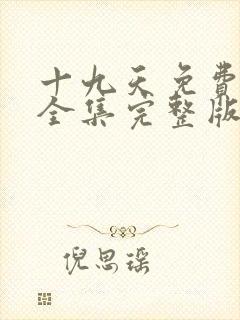 十九天免费
全集完整版
倪思瑶